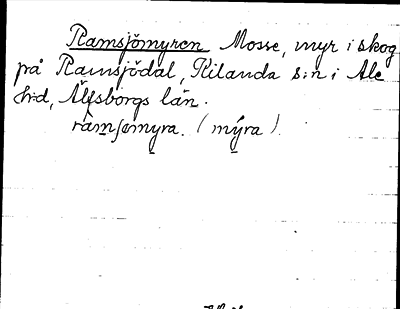 Ramsjömyren Mosse, myr i skog
på Ramsjödal, Kilanda s:n i Ale
h:d, Älfsborgs län.
råmʃømyra. (mýra).